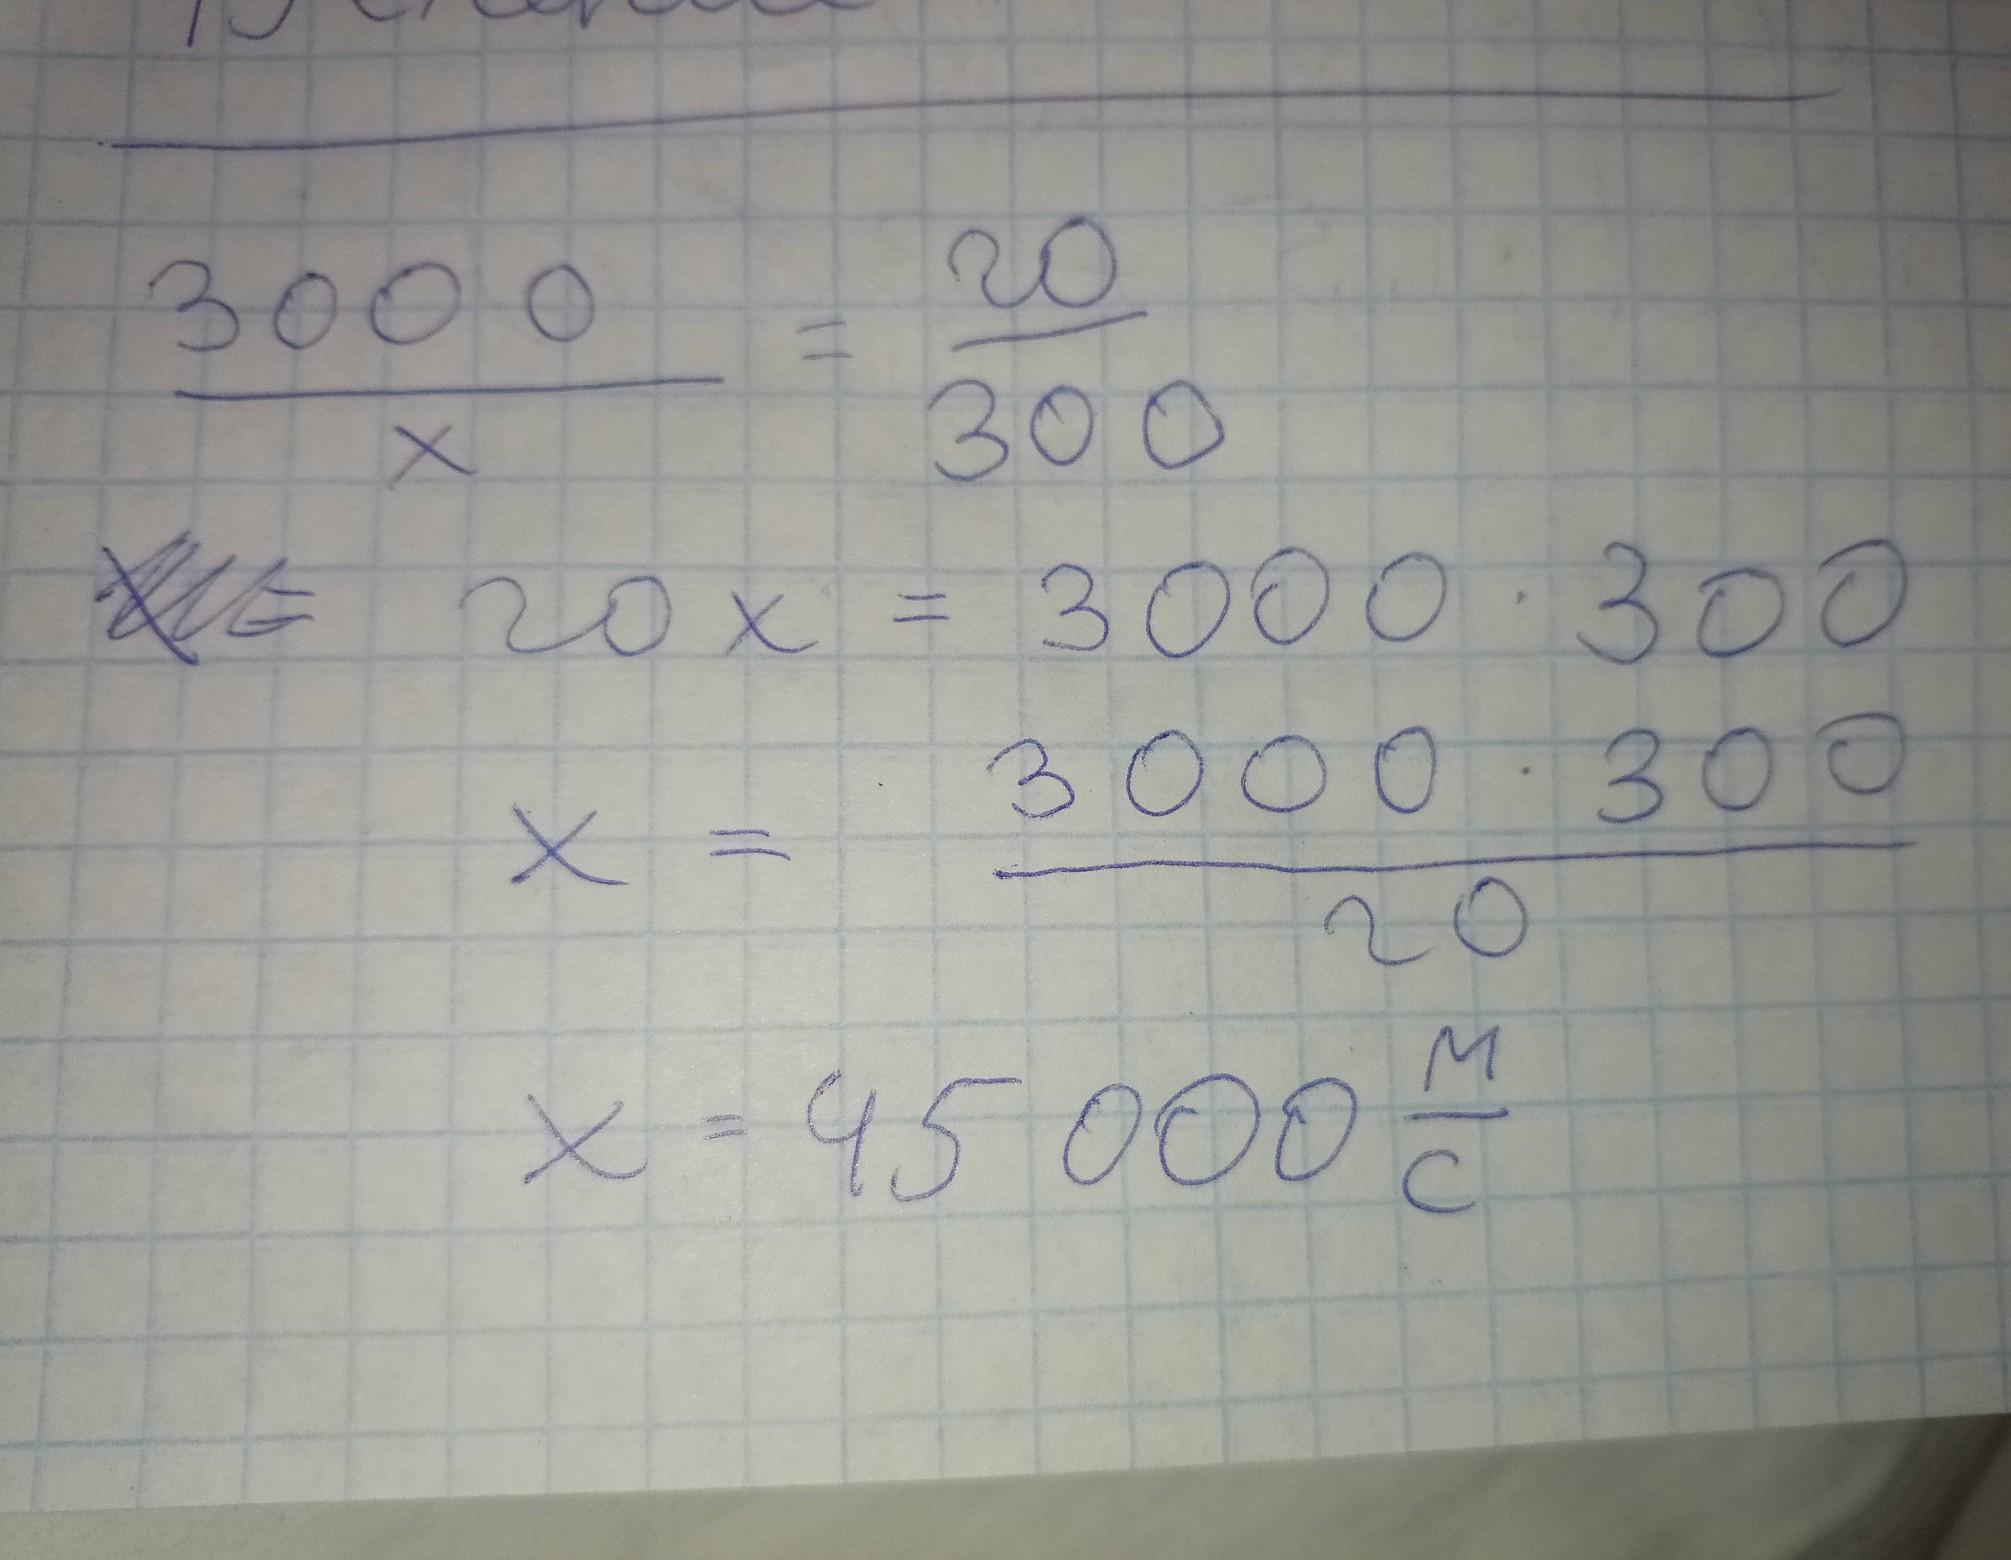 3000/x = 20/300
20x = 3000 · 300
x = 3000 · 300/20
x = 45 000 м/с